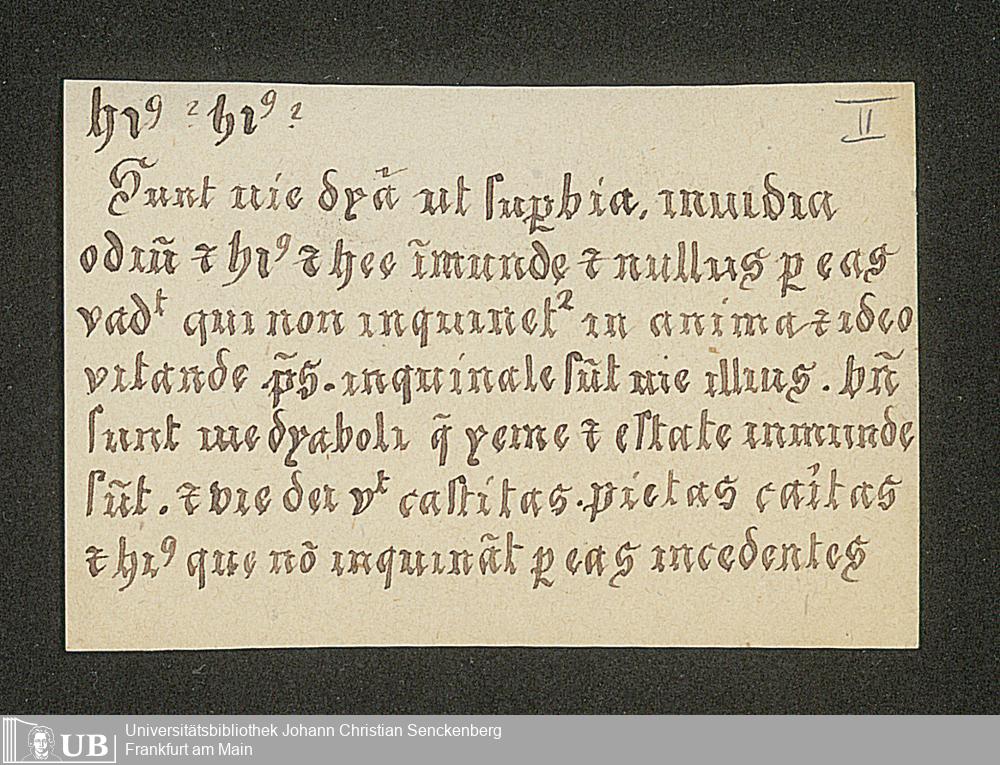 hiꝰ ? hiꝰ ?
II
Sunt uie dyã ut suꝑbia. inuidia
odiũ ⁊ hiꝰ ⁊ hec ĩmundę ⁊ nullus ꝑ eas
vadᵗ qui non inquinet² in anima ⁊ ideo
vitande p̃s. inquinate sũt uie illius. bñ
sunt uie dyaboli q̃ yeme ⁊ estate inmundę
sũt. ⁊ vie dei vᵗ castitas. pietas caĩtas
⁊ hiꝰ que nõ inquinãt ꝑ eas incedentes
UB
Universitätsbibliothek Johann Christian Senckenberg
Frankfurt am Main